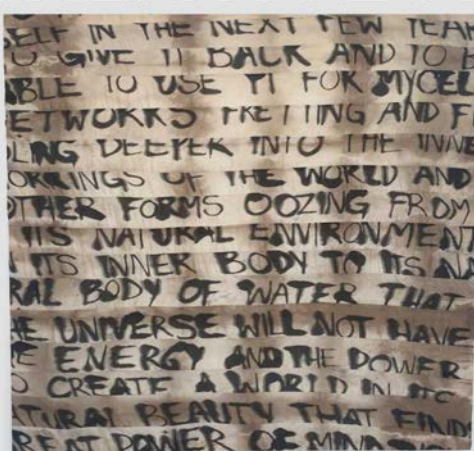 SELF IN THE NEXT FEW YEAR
TO GIVE IT BACK AND TO B
ABLE TO USE IT FOR MYCEL
ETWORKS FRETTING AND F
LING DEEPER INTO THE INNE
ORKINGS OF THE WORLD AND
OTHER FORMS OOZING FROM
ITS NATURAL ENVIRONMENT
ITS INNER BODY TO ITS NA
RAL BODY OF WATER THAT
HE UNIVERSE WILL NOT HAVE
E ENERGY AND THE POWER
O CREATE A WORLD IN ITS
ATURAL BEAUTY THAT FIND
REAT POWER OF